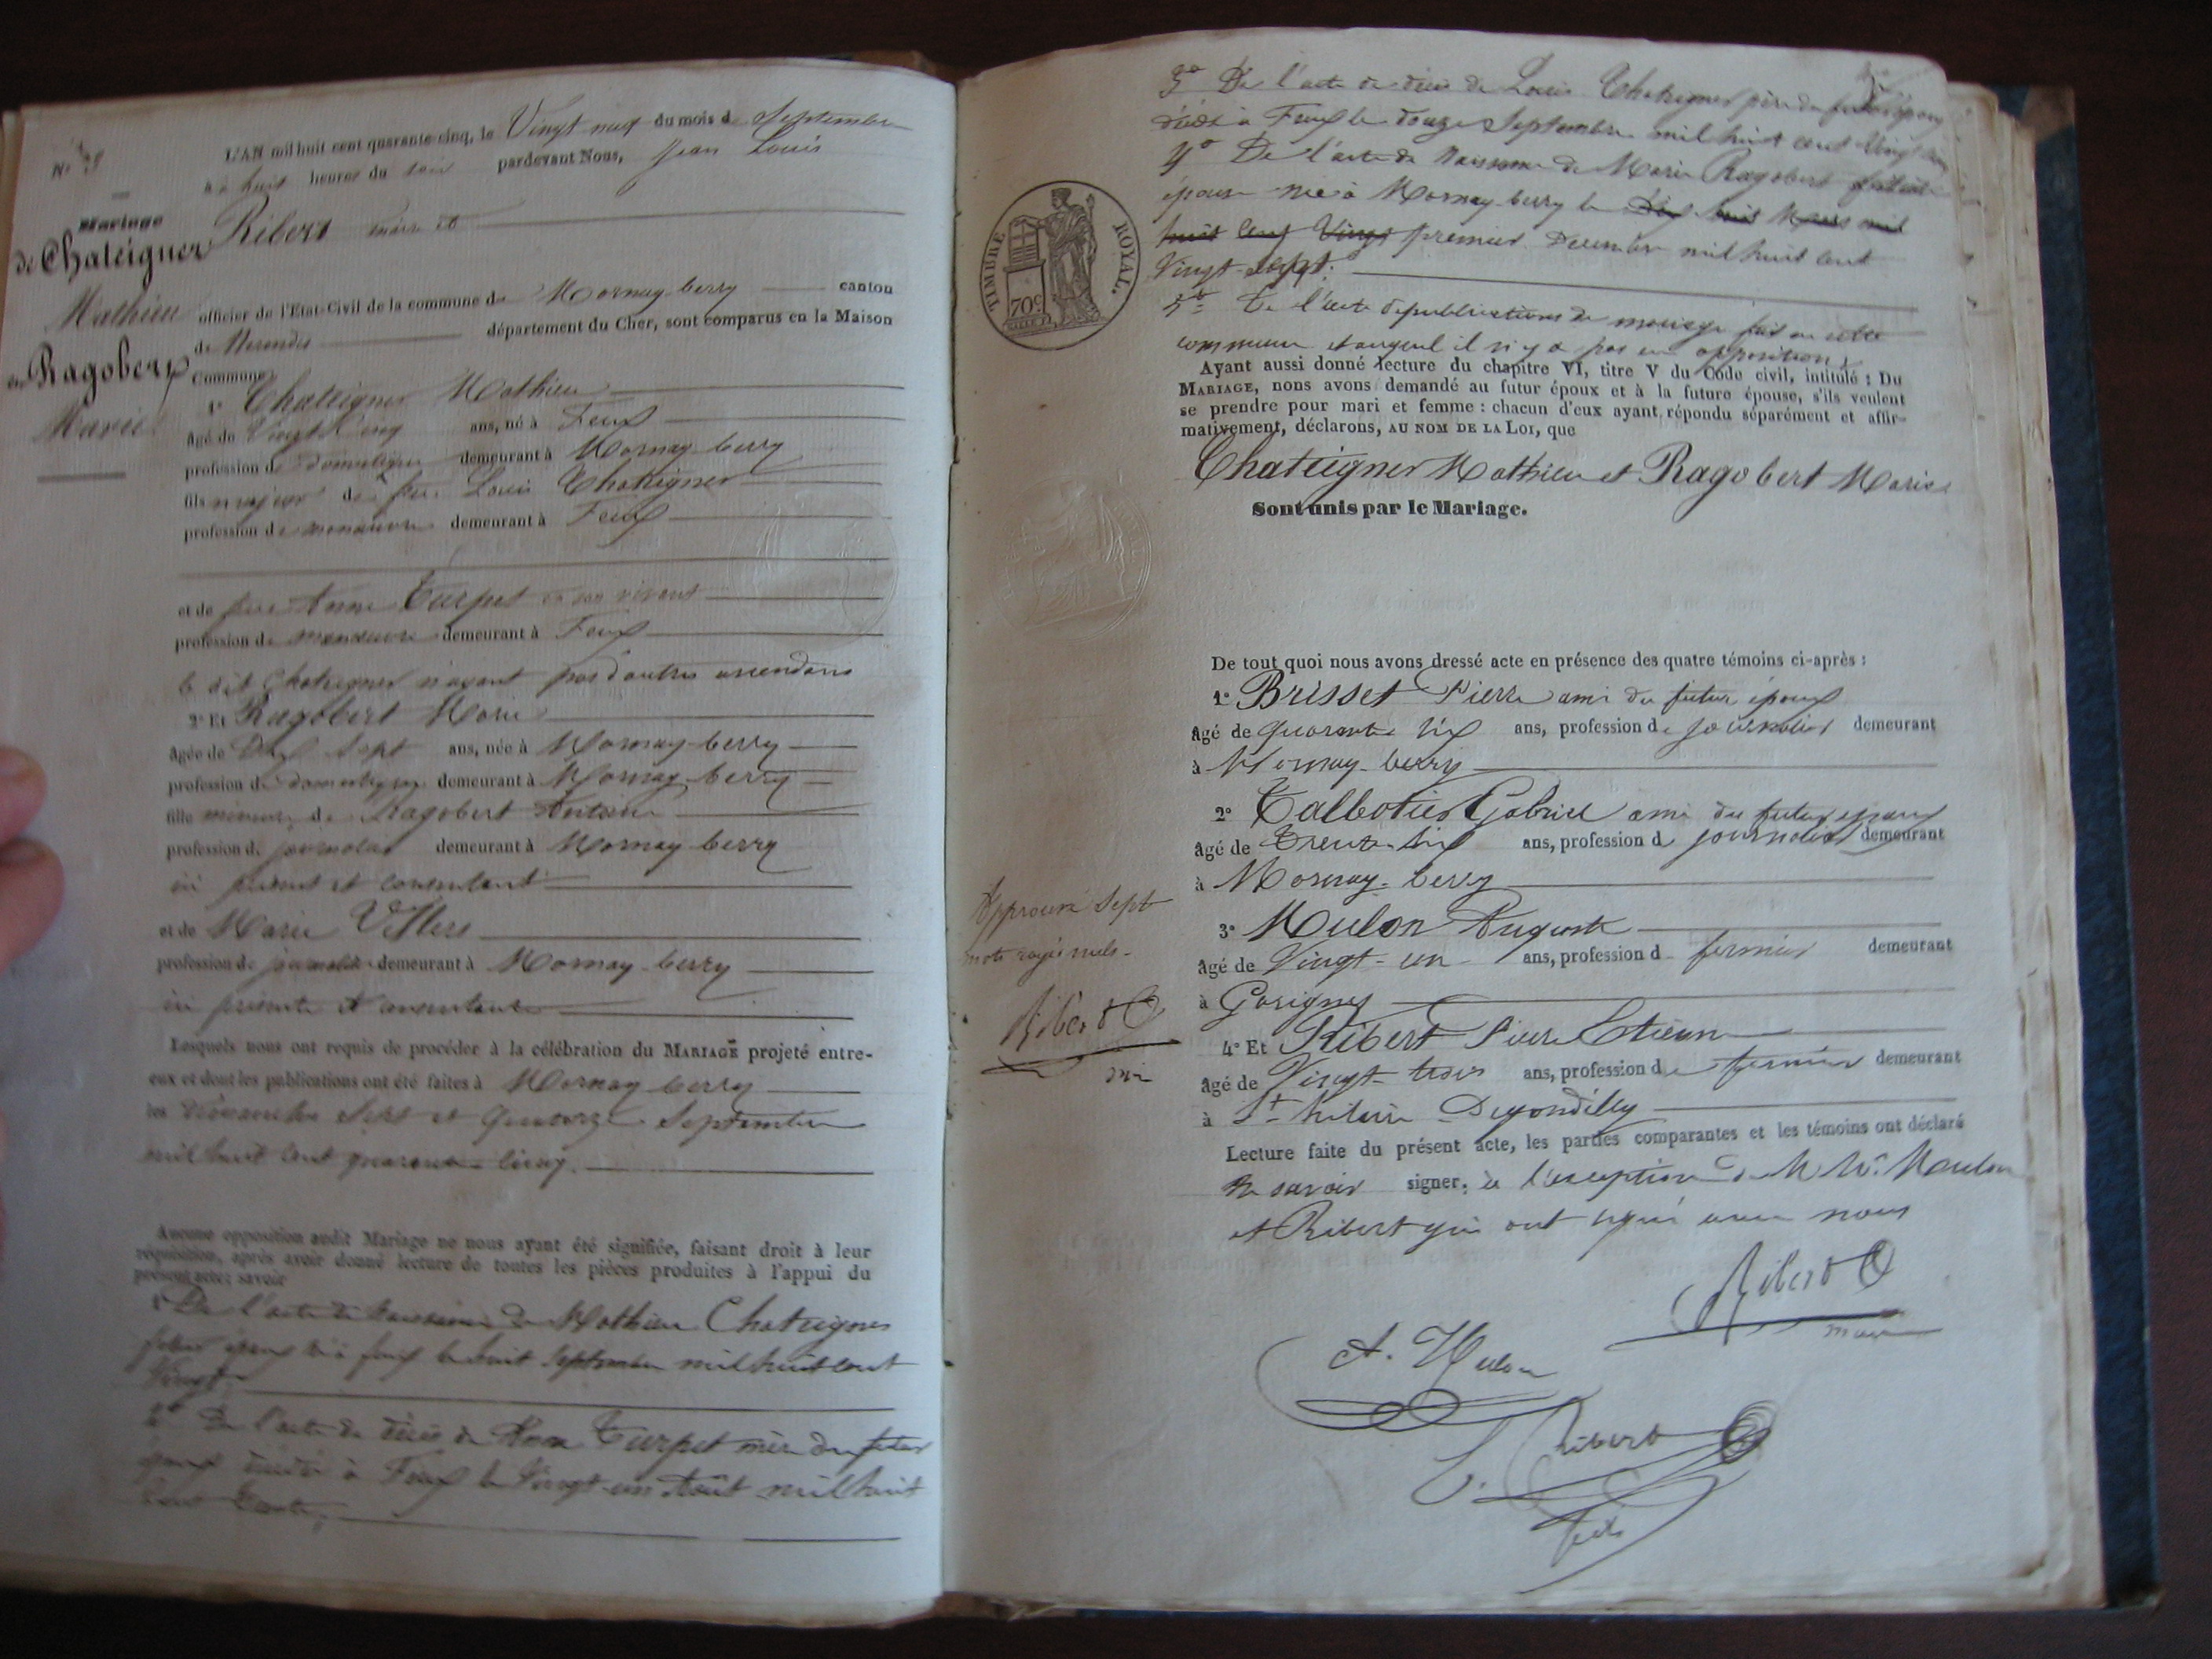 N° 9
Mariage
de Chateigner
Mathieu
et Ragobert
Marie
L'AN mil huit cent quarante-cinq, le Vingt neuf du mois de Septembre
à huit heures du soir pardevant Nous, Jean Louis
Ribert maire et
officier de l'Etat-Civil de la commune de Mornay-berry canton
de Nerondes département du Cher, sont comparus en la Maison
Commune,
1° Chateigner Mathieu
âgé de Vingt Cinq ans, né à Feux
profession de domestique demeurant à Mornay-berry
fils majeur de feu Louis Chateigner
profession de manœuvre demeurant à Feux
et de feue Anne Turpet en son vivant
profession de manœuvre demeurant à Feux
le dit Chateigner n'ayant pas d'autres ascendans
2° Et Ragobert Marie
âgée de Dix Sept ans, née à Mornay-berry
profession de domestique demeurant à Mornay-berry
fille mineure de Ragobert Antoine
profession de journalier demeurant à Mornay-berry
ici présent et consentant
et de Marie Villers
profession de journalière demeurant à Mornay-berry
ici présente et consentante
Lesquels nous ont requis de procéder à la célébration du MARIAGE projeté entre-
eux et dont les publications ont été faites à Mornay-berry
les dimanches Sept et Quatorze Septembre
mil huit cent quarante-cinq.
Aucune opposition audit Mariage ne nous ayant été signifiée, faisant droit à leur
réquisition, après avoir donné lecture de toutes les pièces produites à l'appui du
présent acte; savoir
1° De l'acte de Naissance de Mathieu Chateigner
futur époux né à feux le huit Septembre mil huit cent
Vingt.
2° De l'acte de décès de Anne Turpet mère du futur
époux décédée à Feux le Vingt-un Août mil huit
cent Trente,
3° De l'acte de décès de Louis Chateigner père du futur époux
décédé à Feux le douze Septembre mil huit cent Vingt
4° De l'acte de Naissance de Marie Ragobert future
épouse née à Mornay-berry le Dix huit Mars mil
huit Cent Vingt premier Decembre mil huit cent
Vingt-sept.
5° De l'acte de publications de mariage fait en cette
commune et auquel il n'y a pas eu opposition,
TIMBRE ROYAL.
70c
Ayant aussi donné lecture du chapitre VI, titre V du Code civil, intitulé : DU
MARIAGE, nous avons demandé au futur époux et à la future épouse, s'ils veulent
se prendre pour mari et femme : chacun d'eux ayant répondu séparément et affir-
mativement, déclarons, AU NOM DE LA LOI, que
Chateigner Mathieu et Ragobert Marie
Sont unis par le Mariage.
De tout quoi nous avons dressé acte en présence des quatre témoins ci-après :
1° Brisset Pierre ami du futur époux
âgé de quarante six ans, profession de journalier demeurant
à Mornay-berry
2° Talbotier Gabriel ami du futur époux
âgé de Trente-six ans, profession de journalier demeurant
à Mornay-berry
3° Moulon Auguste
âgé de Vingt-un ans, profession de fermier demeurant
à Garigny
4° Et Ribert Pierre Etienne
âgé de Vingt-trois ans, profession de fermier demeurant
à St hilaire Degondilly
Approuvé Sept
mots rayés nuls.
Ribert
Lecture faite du présent acte, les parties comparantes et les témoins ont déclaré
ne savoir signer, à l'exception de MM. Moulon
et Ribert qui ont signé avec nous
Ribert
maire
A. Moulon
E. Ribert
fils